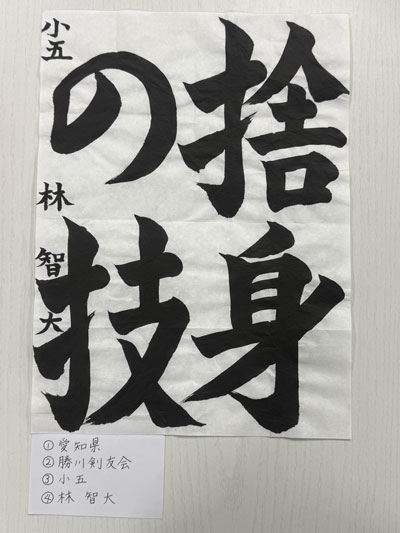 捨身
の技
小五 林 智大
①愛知県
②勝川剣友会
③小五
④林 智大